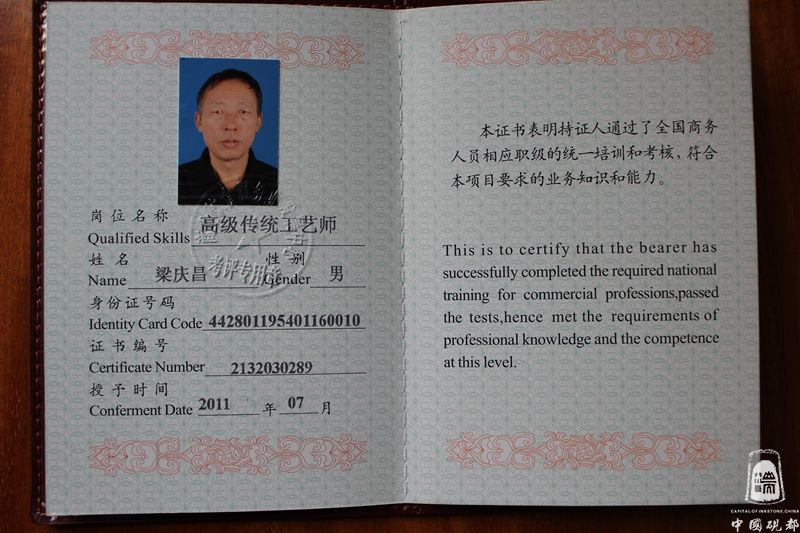 岗位名称
Qualified Skills 高级传统工艺师
姓名 性别
Name 梁庆昌 Gender 男
身份证号码
Identity Card Code 442801195401160010
证书编号
Certificate Number 2132030289
授予时间
Conferment Date 2011 年 07 月
考评专用章
本证书表明持证人通过了全国商务
人员相应职级的统一培训和考核，符合
本项目要求的业务知识和能力。
This is to certify that the bearer has
successfully completed the required national
training for commercial professions,passed
the tests,hence met the requirements of
professional knowledge and the competence
at this level.
CAPITAL OF INKSTONE,CHINA
中國硯都